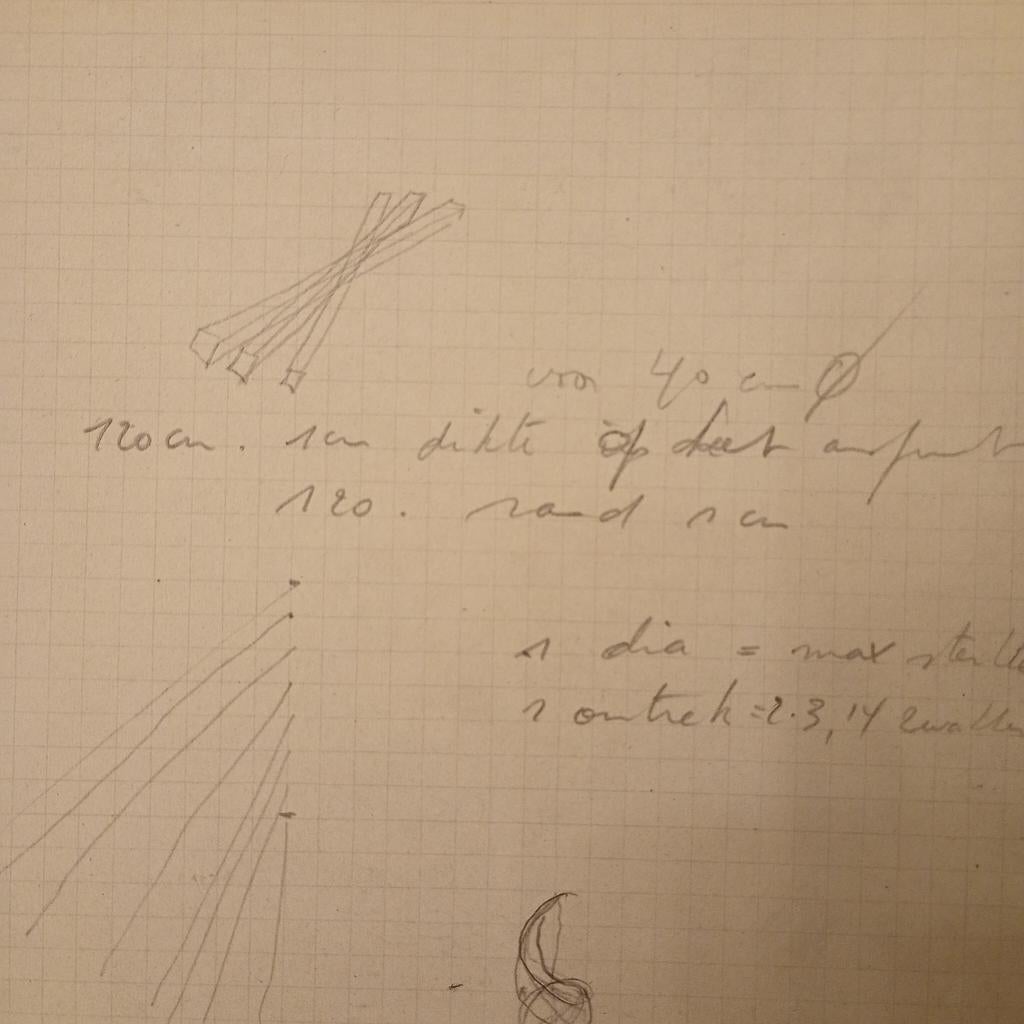 voor 40 cm Ø
120 cm. 1 cm dikte op
120. rand 1 cm
1 dia = max
1 omtrek = 2.3,14